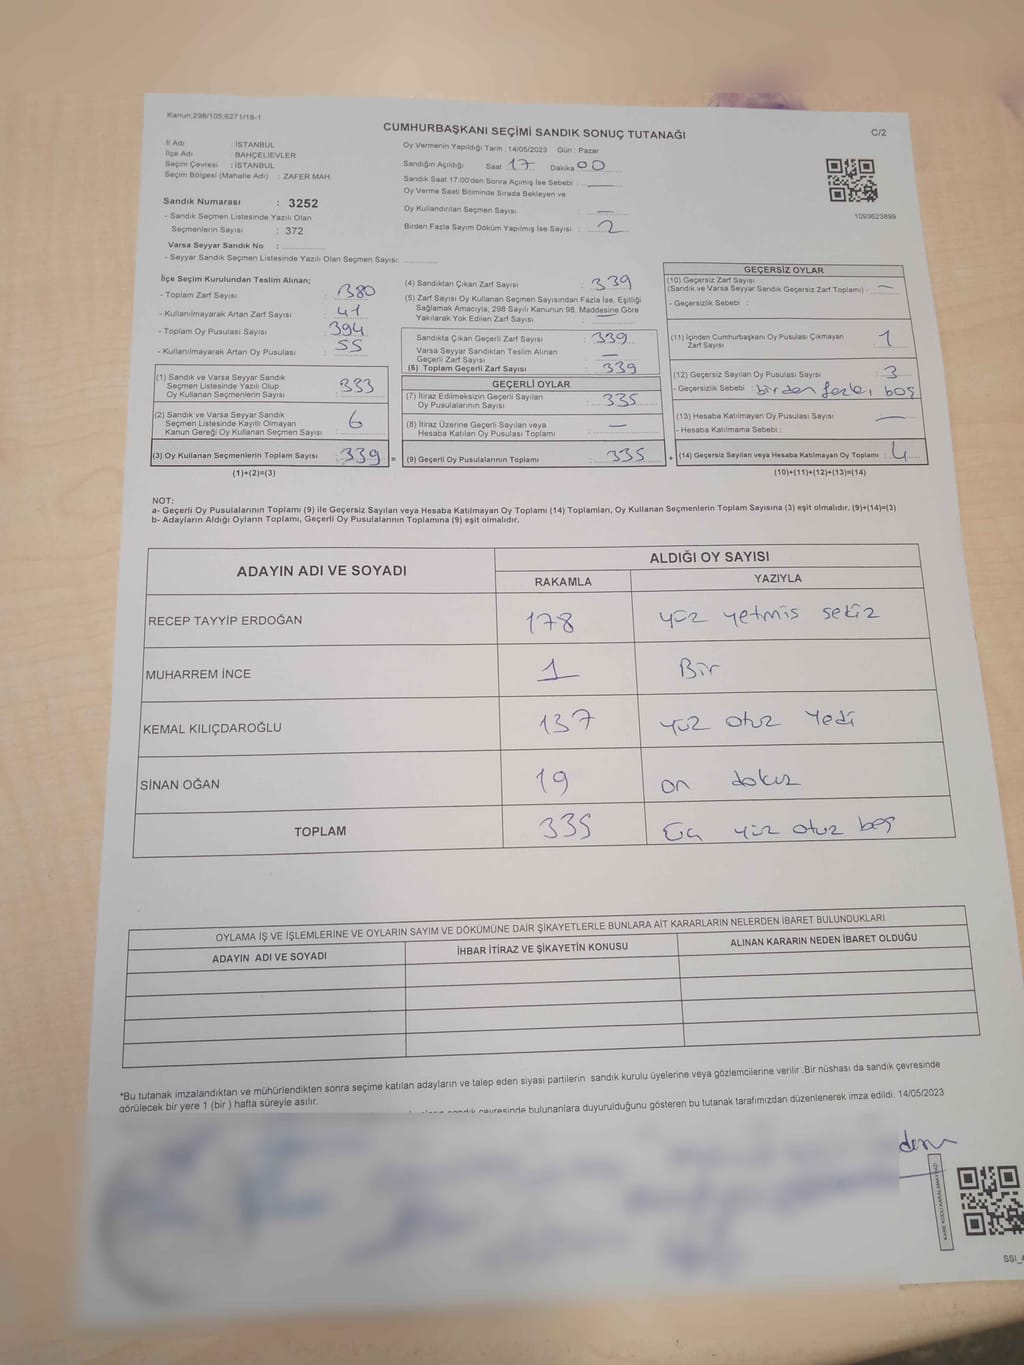 Kanun;298/105;6271/18-1
CUMHURBAŞKANI SEÇİMİ SANDIK SONUÇ TUTANAĞI
C/2
İl Adı : İSTANBUL
İlçe Adı : BAHÇELİEVLER
Seçim Çevresi : İSTANBUL
Seçim Bölgesi (Mahalle Adı) : ZAFER MAH.
Sandık Numarası : 3252
- Sandık Seçmen Listesinde Yazılı Olan
Seçmenlerin Sayısı : 372
Varsa Seyyar Sandık No :
- Seyyar Sandık Seçmen Listesinde Yazılı Olan Seçmen Sayısı:
Oy Vermenin Yapıldığı Tarih : 14/05/2023 Gün : Pazar
Sandığın Açıldığı Saat 17 Dakika 00
Sandık Saat 17:00'den Sonra Açımış İse Sebebi : —
Oy Verme Saati Bitiminde Sırada Bekleyen ve
Oy Kullandırılan Seçmen Sayısı : —
Birden Fazla Sayım Döküm Yapılmış İse Sayısı : 2
1093623899
İlçe Seçim Kurulundan Teslim Alınan;
- Toplam Zarf Sayısı : 380
- Kullanılmayarak Artan Zarf Sayısı : 41
- Toplam Oy Pusulası Sayısı : 394
- Kullanılmayarak Artan Oy Pusulası : 55
(1) Sandık ve Varsa Seyyar Sandık
Seçmen Listesinde Yazılı Olup
Oy Kullanan Seçmenlerin Sayısı : 333
(2) Sandık ve Varsa Seyyar Sandık
Seçmen Listesinde Kayıtlı Olmayan
Kanun Gereği Oy Kullanan Seçmen Sayısı : 6
(3) Oy Kullanan Seçmenlerin Toplam Sayısı : 339
(1)+(2)=(3)
(4) Sandıktan Çıkan Zarf Sayısı : 339
(5) Zarf Sayısı Oy Kullanan Seçmen Sayısından Fazla İse, Eşitliği
Sağlamak Amacıyla; 298 Sayılı Kanunun 98. Maddesine Göre
Yakılarak Yok Edilen Zarf Sayısı : —
Sandıkta Çıkan Geçerli Zarf Sayısı : 339
Varsa Seyyar Sandıktan Teslim Alınan
Geçerli Zarf Sayısı : —
(6) Toplam Geçerli Zarf Sayısı : 339
GEÇERLİ OYLAR
(7) İtiraz Edilmeksizin Geçerli Sayılan
Oy Pusulalarının Sayısı : 335
(8) İtiraz Üzerine Geçerli Sayılan veya
Hesaba Katılan Oy Pusulası Toplamı : —
= (9) Geçerli Oy Pusulalarının Toplamı : 335
GEÇERSİZ OYLAR
(10) Geçersiz Zarf Sayısı
(Sandık ve Varsa Seyyar Sandık Geçersiz Zarf Toplamı) : —
- Geçersizlik Sebebi :
(11) İçinden Cumhurbaşkanı Oy Pusulası Çıkmayan
Zarf Sayısı : 1
(12) Geçersiz Sayılan Oy Pusulası Sayısı : 3
- Geçersizlik Sebebi : birden fazla, boş
(13) Hesaba Katılmayan Oy Pusulası Sayısı : —
- Hesaba Katılmama Sebebi :
+ (14) Geçersiz Sayılan veya Hesaba Katılmayan Oy Toplamı : 4
(10)+(11)+(12)+(13)=(14)
NOT:
a- Geçerli Oy Pusulalarının Toplamı (9) ile Geçersiz Sayılan veya Hesaba Katılmayan Oy Toplamı (14) Toplamları, Oy Kullanan Seçmenlerin Toplam Sayısına (3) eşit olmalıdır. (9)+(14)=(3)
b- Adayların Aldığı Oyların Toplamı, Geçerli Oy Pusulalarının Toplamına (9) eşit olmalıdır.
ADAYIN ADI VE SOYADI
ALDIĞI OY SAYISI
RAKAMLA YAZIYLA
RECEP TAYYİP ERDOĞAN 178 yüz yetmis sekiz
MUHARREM İNCE 1 Bir
KEMAL KILIÇDAROĞLU 137 yüz otuz Yedi
SİNAN OĞAN 19 on dokuz
TOPLAM 335 yüz otuz beş
OYLAMA İŞ VE İŞLEMLERİNE VE OYLARIN SAYIM VE DÖKÜMÜNE DAİR ŞİKAYETLERLE BUNLARA AİT KARARLARIN NELERDEN İBARET BULUNDUKLARI
ADAYIN ADI VE SOYADI İHBAR İTİRAZ VE ŞİKAYETİN KONUSU ALINAN KARARIN NEDEN İBARET OLDUĞU
*Bu tutanak imzalandıktan ve mühürlendikten sonra seçime katılan adayların ve talep eden siyasi partilerin sandık kurulu üyelerine veya gözlemcilerine verilir .Bir nüshası da sandık çevresinde
görülecek bir yere 1 (bir ) hafta süreyle asılır.
sandık çevresinde bulunanlara duyurulduğunu gösteren bu tutanak tarafımızdan düzenlenerek imza edildi. 14/05/2023
KARE KODU KARALAMAYINIZ!